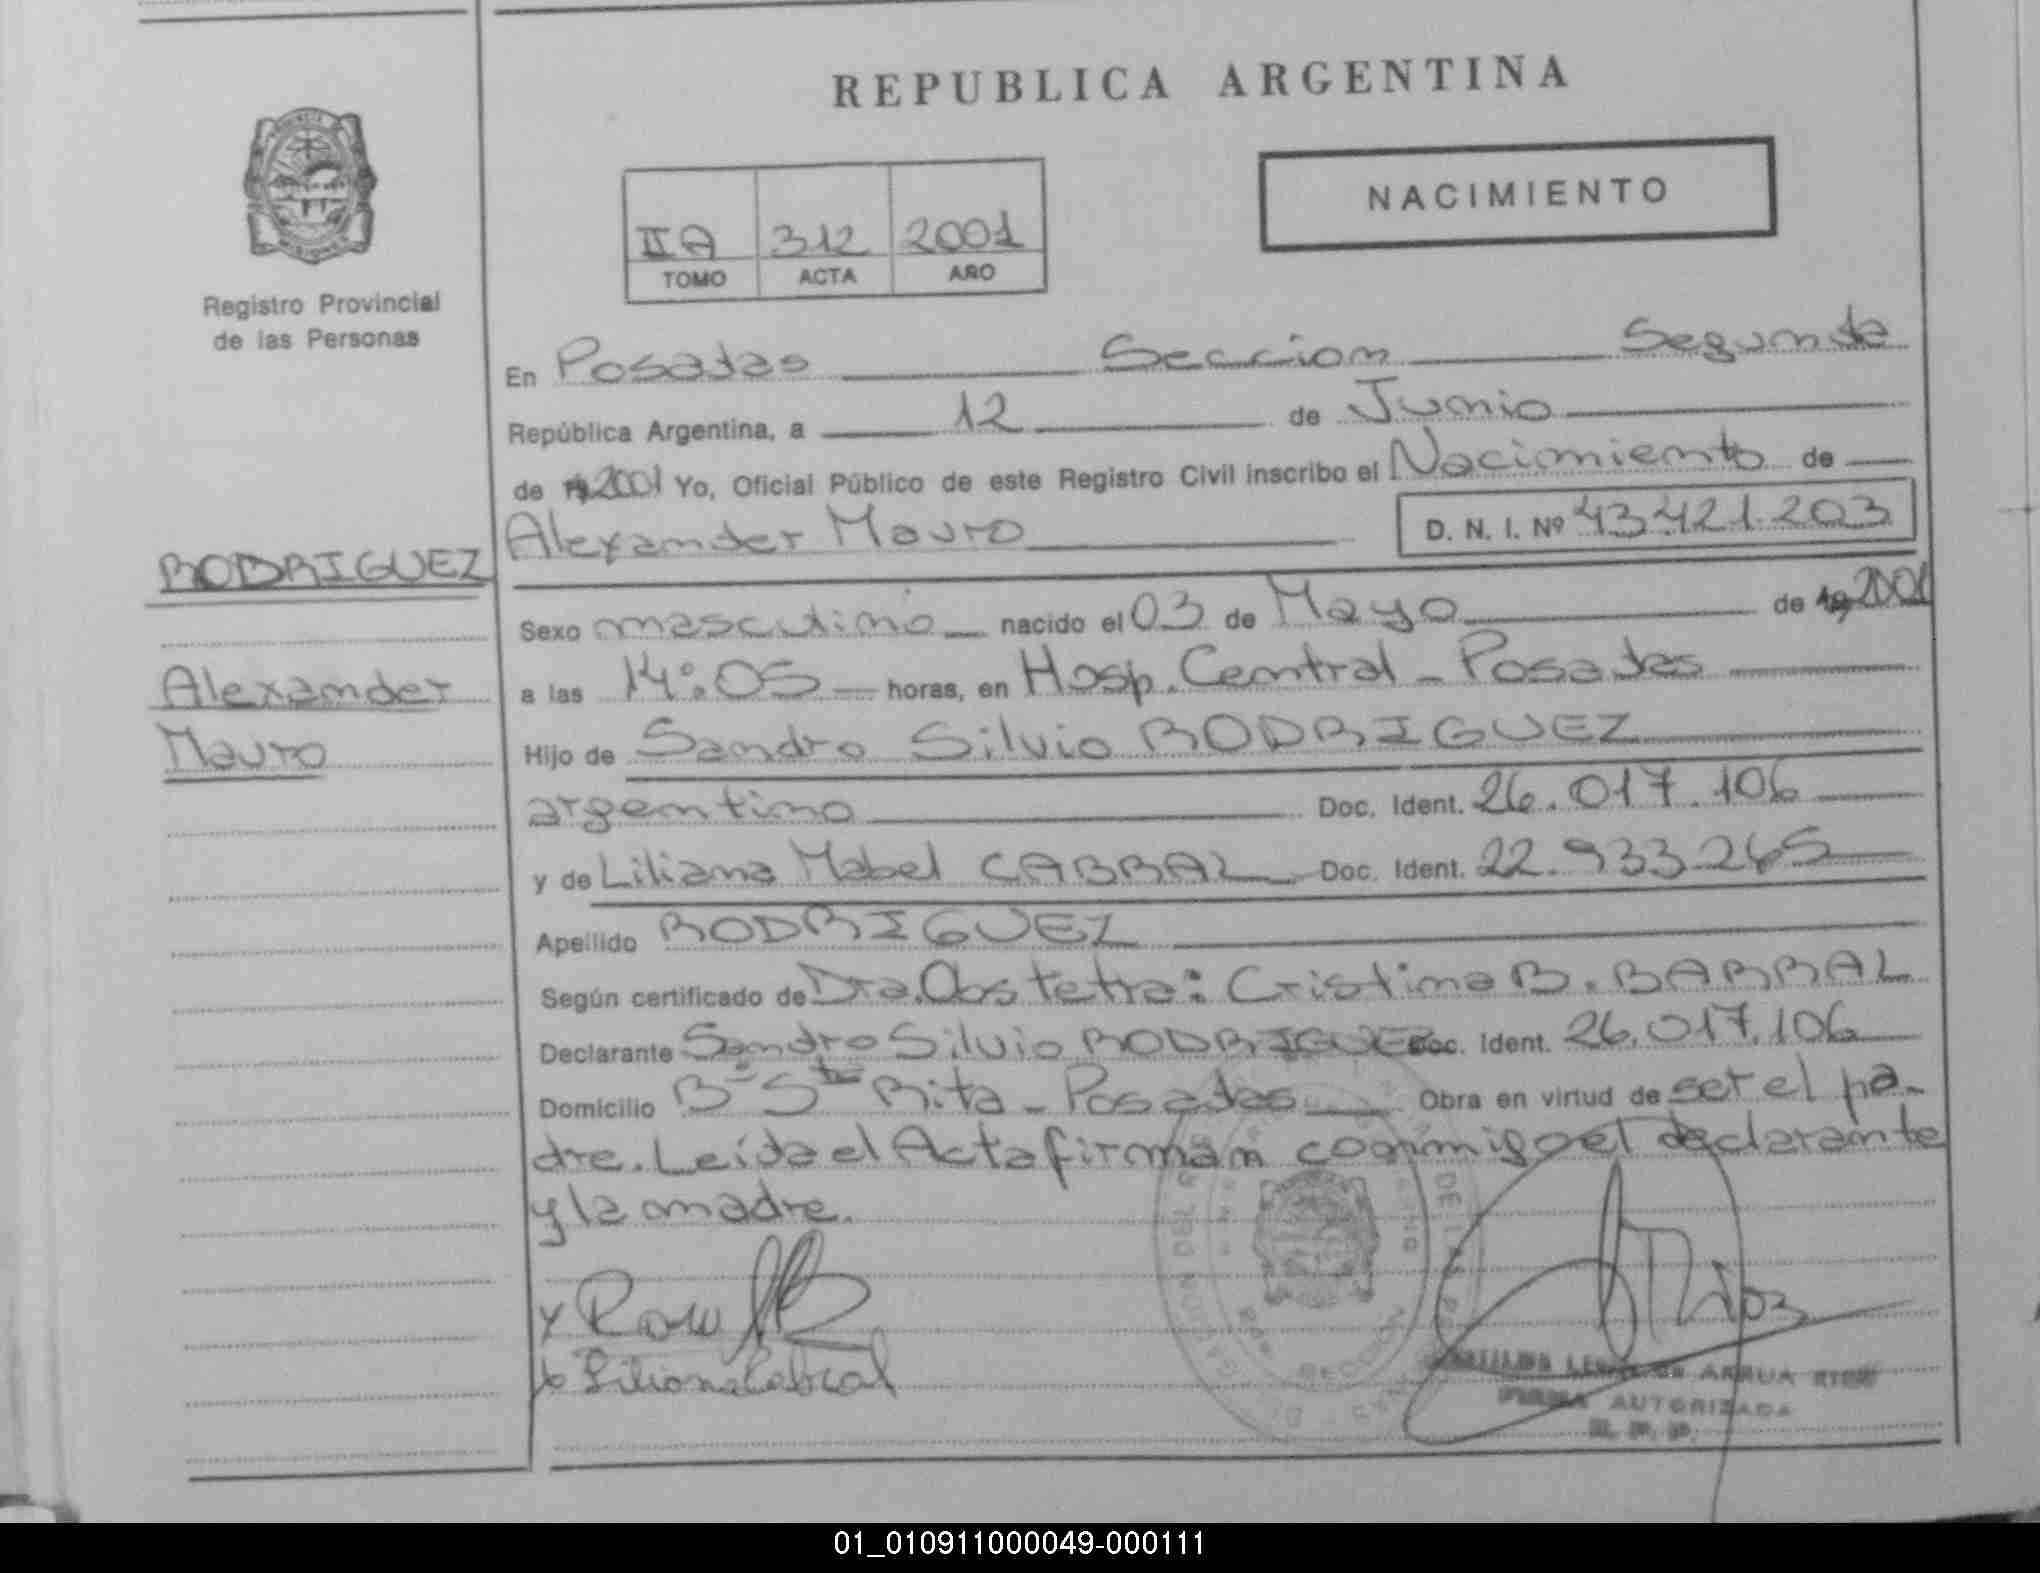 REPUBLICA ARGENTINA
NACIMIENTO
IIA 312 2001
TOMO ACTA AÑO
Registro Provincial
de las Personas
En Posadas Seccion Segunda
República Argentina, a 12 de Junio
de 2001 Yo, Oficial Público de este Registro Civil inscribo el Nacimiento de
Alexander Mauro D. N. I. Nº 43.421.203
RODRIGUEZ
Alexander
Mauro
Sexo masculino nacido el 03 de Mayo de 2001
a las 14:05 horas, en Hosp. Central - Posadas
Hijo de Sandro Silvio RODRIGUEZ
argentino Doc. Ident. 26.017.106
y de Liliana Mabel CABRAL Doc. Ident. 22.933.265
Apellido RODRIGUEZ
Según certificado de Dra. Obstetra: Cristina B. BARRAL
Declarante Sandro Silvio RODRIGUEZ Doc. Ident. 26.017.106
Domicilio Bº Sta Rita - Posadas Obra en virtud de ser el pa-
dre. Leída el Acta firman conmigo el declarante
y la madre.
Liliana Cabral
DE ARRUA
FIRMA AUTORIZADA
R. P. P.
01_010911000049-000111